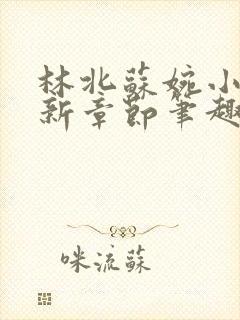 林北蘇婉小
新章節筆趣
咪流蘇